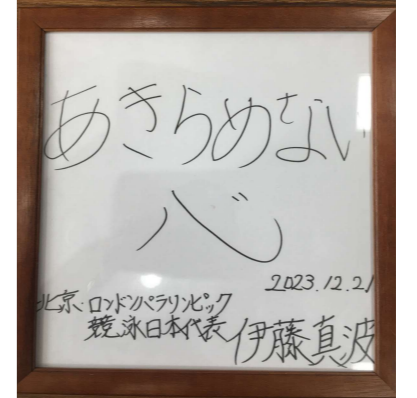 あきらめない
心
2023.12.21
北京・ロンドンパラリンピック
競泳日本代表 伊藤真波